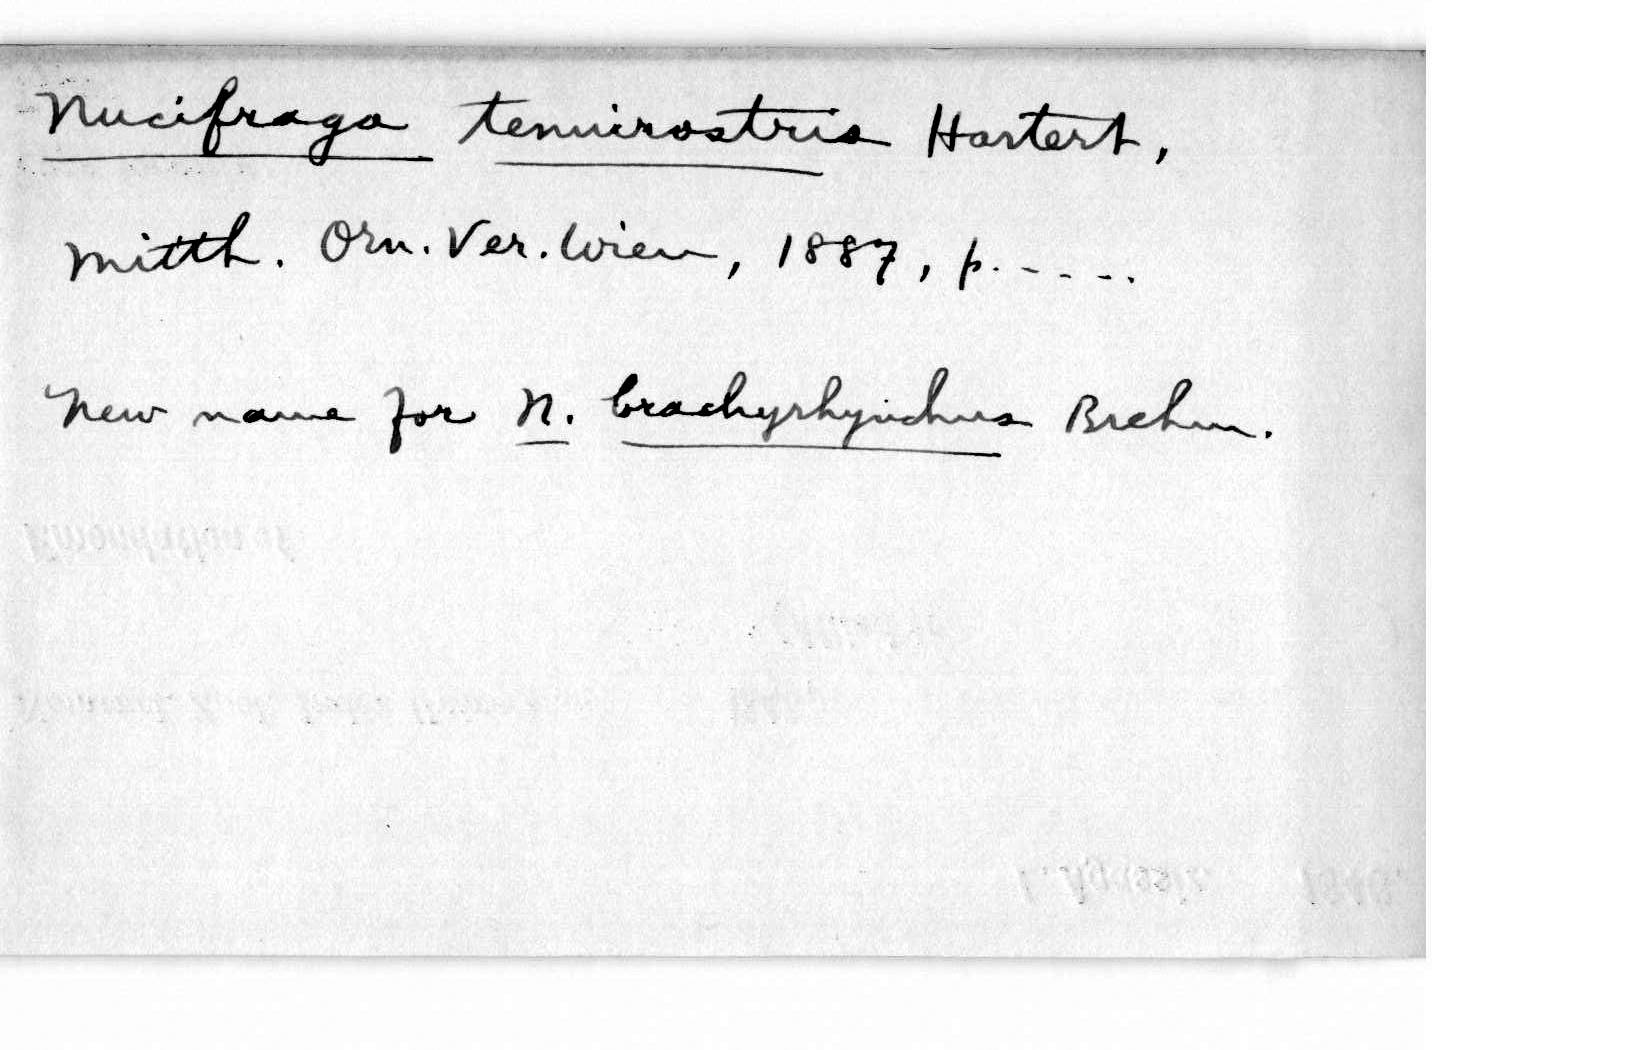 Nucifraga tenuirostris Hartert,
Mitth. Orn. Ver. Wien, 1887, p. - - - -.
New name for N. brachyrhynchus Brehm.